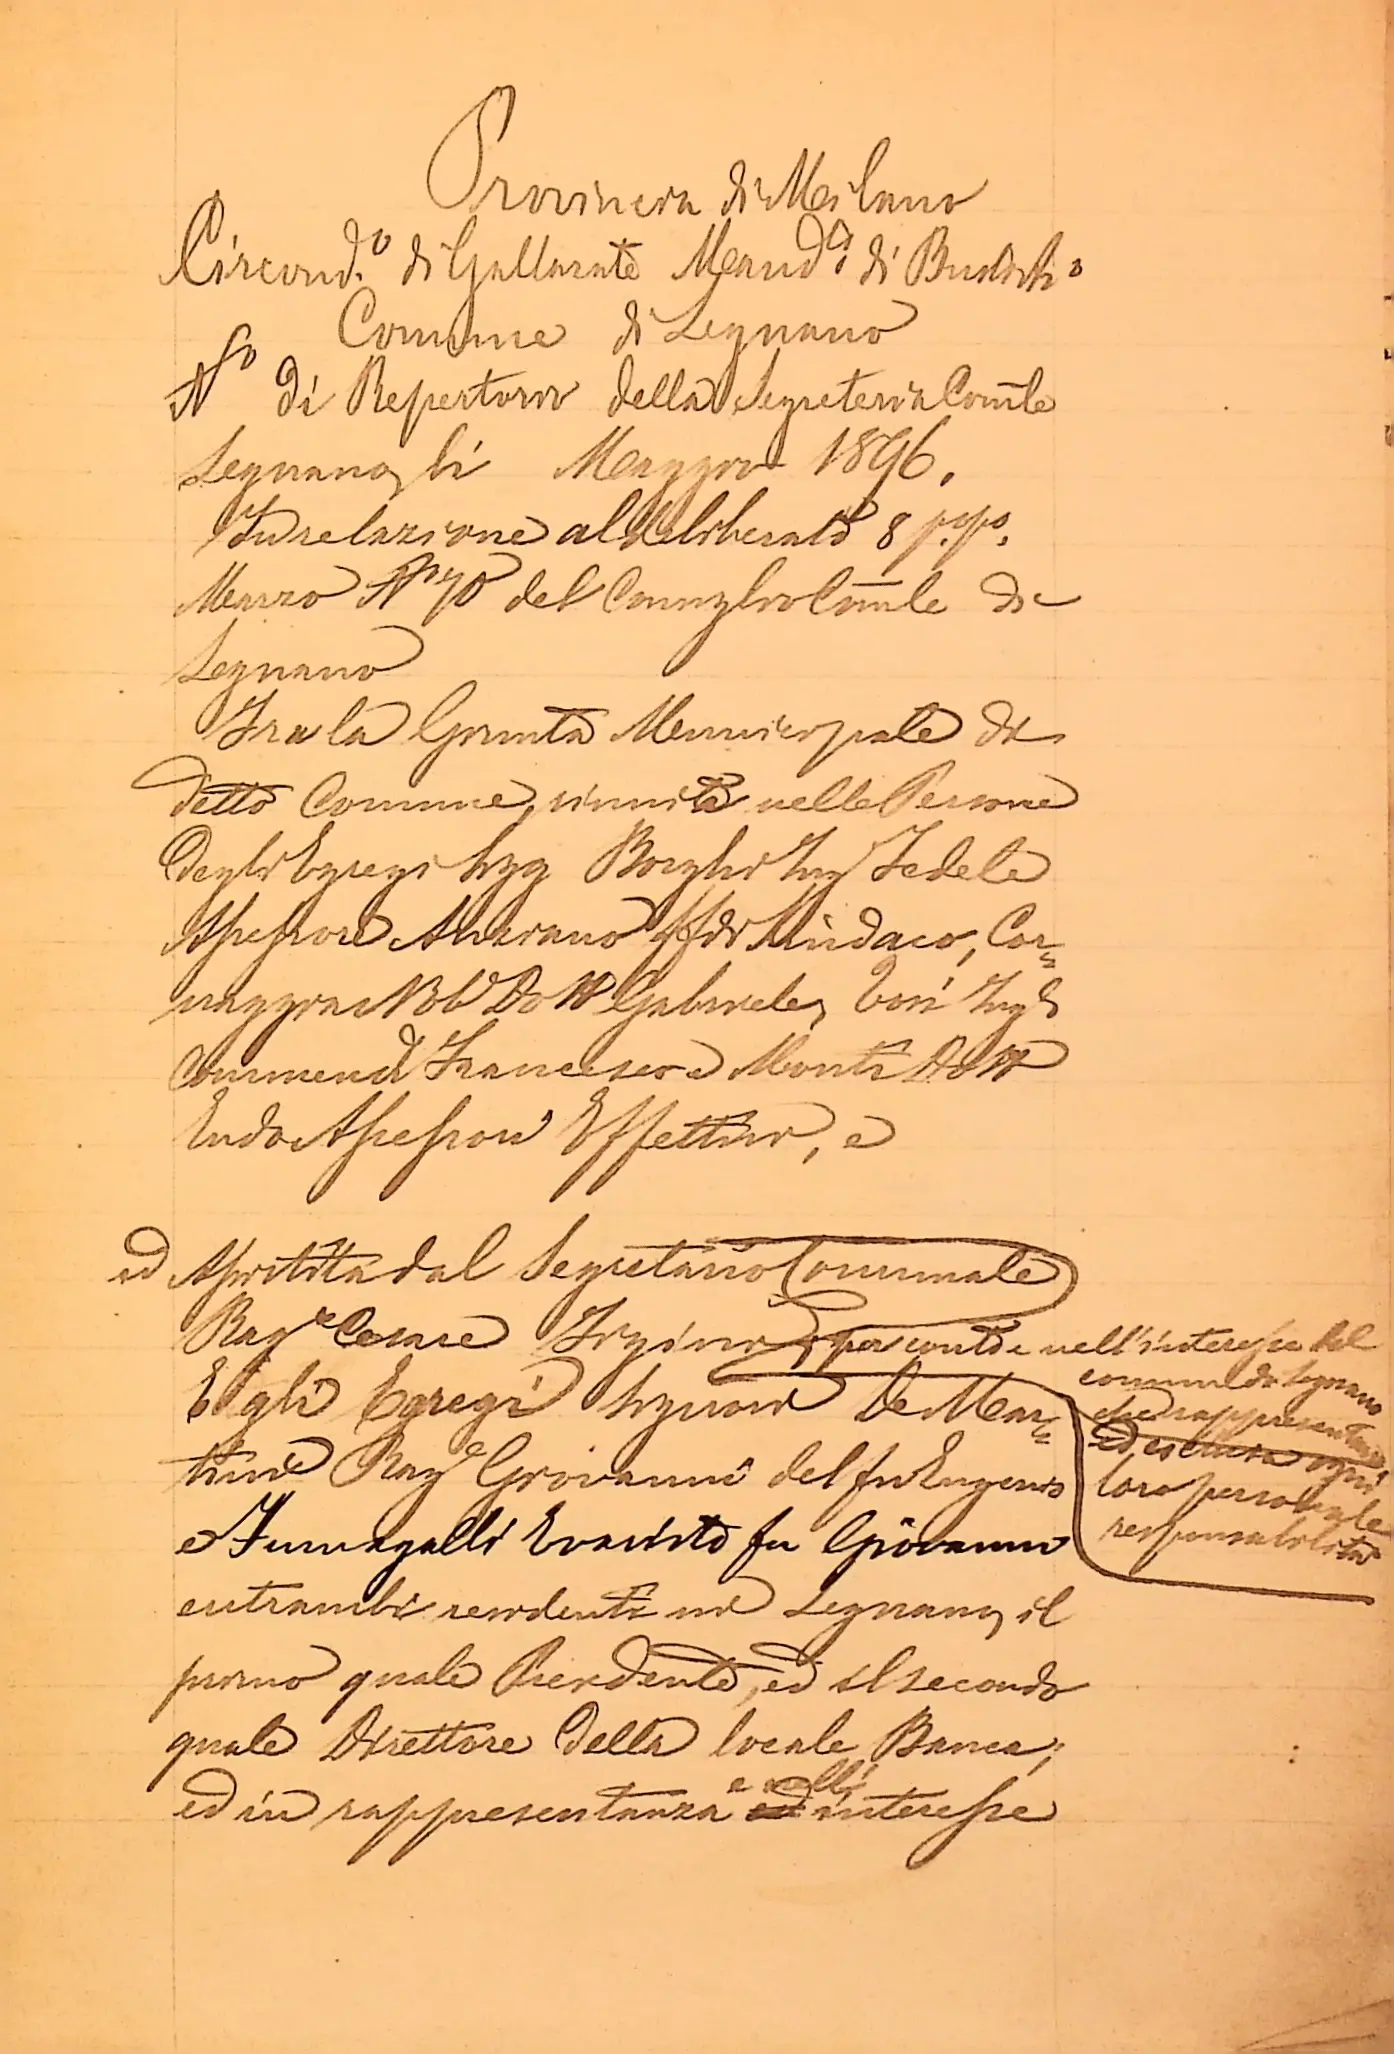 Provincia di Milano
Circond.o di Gallarate Mand.o di Busto
Comune di Legnano
No di Repertorio della Segreteria Comle
Legnano, li Maggio 1896.
In relazione al deliberato 8 p.p.o
Marzo No 70 del Consiglio Comle di
Legnano
Fra la Giunta Municipale di
detto Comune, riunita nelle Persone
degli Egregi Sigg Borghi Ing Fedele
Assessore Anziano ff di Sindaco, Cor=
naggia Nob Dott Gabriele, Tosi Ing
Commend Francesco e Monti Dott
Assessori Effettivi, e
ed Assistita dal Segretario Comunale
Rag.e Cesare per conto e nell'interesse del
comune di Legnano
che rappresentano
ed esclusa ogni
loro personale
responsabilità
E gli Egregi Signori De Mar=
tini Rag.e Giovanni del fu Eugenio
e Fumagalli Evaristo fu Giovanni
entrambi residenti in Legnano, il
primo quale Presidente, ed il secondo
quale Direttore della locale Banca;
ed in rappresentanza e nell' interesse